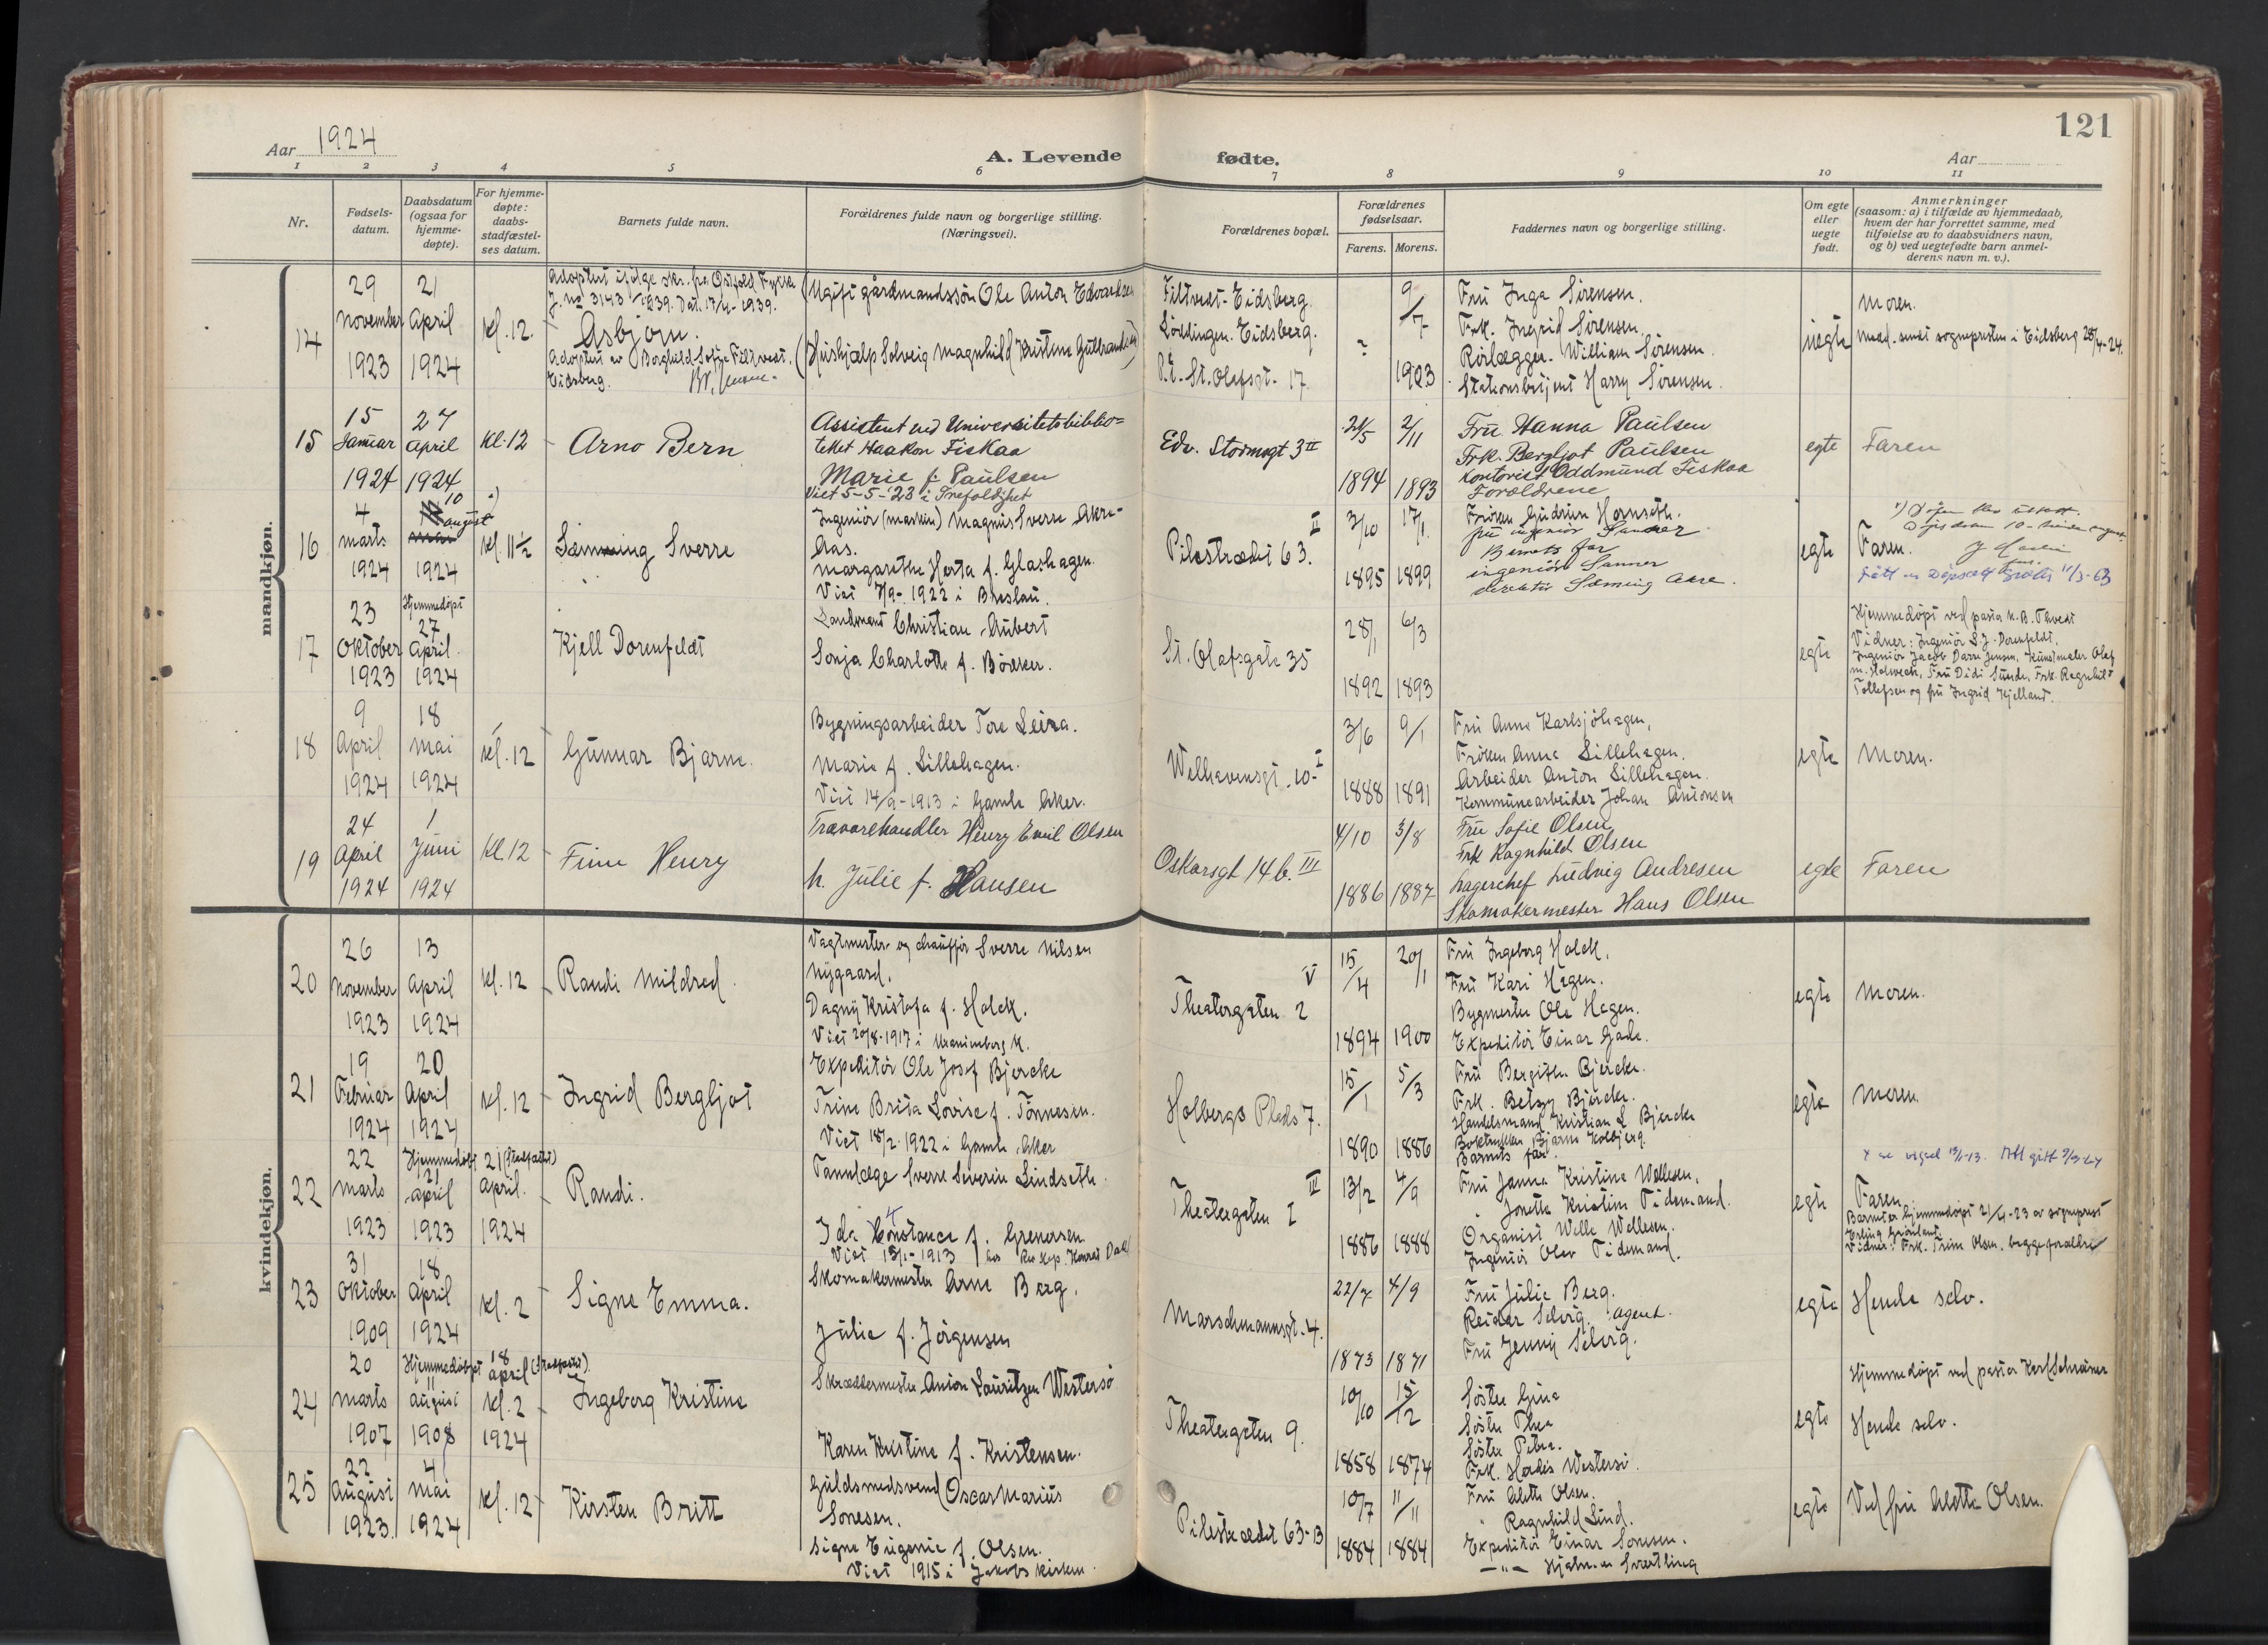 121
Aar 1924
A. Levende fødte.
Aar
1 2 3 4 5 6 7 8 9 10 11
Nr.
Fødsels-
datum.
Daabsdatum
(ogsaa for
hjemme-
døpte).
For hjemme-
døpte:
daabs-
stadfæstel-
ses datum.
Barnets fulde navn.
Forældrenes fulde navn og borgerlige stilling.
(Næringsvei).
Forældrenes bopæl.
Forældrenes
fødselsaar.
Farens. Morens.
Faddernes navn og borgerlige stilling.
Om egte
eller
uegte
født.
Anmerkninger
(saasom: a) i tilfælde av hjemmedaab,
hvem der har forrettet samme, med
tilføielse av to daabsvidners navn,
og b) ved uegtefødte barn anmel-
derens navn m. v.).
mandkjøn.
14
29
November
1923
21
April
1924
Kl. 12.
Adoptert ifølge skr. fra Østfold Fylke
J. no 3143/1939. Dat. 17/4-1939.
Asbjørn.
Adoptert av Borghild Sofie Filtvedt.
Eidsberg.
Ugift gårdmandssøn Ole Anton Edvardsen
Hushjælp Solveig Magnhild Kristine Gulbrandsen
Filtvedt-Eidsberg
Eidsberg.
St. Olafsgt. 17
?
9/7
1903
Fru Inga Sørensen.
Frk. Ingrid Sørensen.
Rørlægger William Sørensen.
Stationsbetjent Harry Sørensen.
uegte
Moren.
Med. sendt sognepresten i Eidsberg 28/4-24.
15
15
Januar
1924
27
April
1924
Kl. 12
Arno Bern
Assistent ved Universitetsbiblio=
teket Haakon Fiskaa
Marie f. Paulsen
Viet 5-5-'23 i Trefoldighet
Edv. Stormsgt 3 II
24/5
1894
2/11
1893
Fru Hanna Paulsen
Frk. Bergljot Paulsen
Kontorist Oddmund Fiskaa
Forældrene
egte
Faren
16
4
marts
1924
10
august
1924
Kl. 11½
Sæming Sverre
Ingeniør (maskin) Magnus Sverre Akre-
Aas.
Margarethe Herta f. Glashagen.
Viet 7/9-1922 i Breslau.
Pilestrædet 63. II
3/10
1895
17/1
1899
Frøken Gudrun Hornseth.
fru ingeniør Sanner
Barnets far
ingeniør Sanner
direktør Sæming Akre.
egte
Faren.
17
23
Oktober
1923
Hjemmedøpt
27
April
1924
Kjell Dorenfeldt
Landmand Christian Aubert
Sonja Charlotte f. Böcker.
St. Olafsgate 35
28/1
1892
6/3
1893
egte
Hjemmedøpt ved pastor K. B. Thvedt
Vidner: Ingeniør L. J. Dorenfeldt,
Ingeniør Jacob Darre Jensen, Kunstmaler Olaf
M. Holwech, Fru Didi Sunde, Frk. Ragnhild
Tollefsen og fru Ingrid Kjelland.
18
9
April
1924
18
Mai
1924
Kl. 12
Gunnar Bjarne.
Bygningsarbeider Tore Leira.
Marie f. Lillehagen.
Viet 14/9-1913 i Gamle Aker.
Welhavensgt. 10 I
3/6
1888
9/1
1891
Fru Anne Karlsjøhagen,
Frøken Anna Lillehagen.
Arbeider Anton Lillehagen.
Kommunearbeider Johan Antonsen
egte
Moren.
19
24
April
1924
1
Juni
1924
Kl. 12
Finn Henry
Trævarehandler Henry Emil Olsen
h. Julie f. Hansen
Oskarsgt 14 b. III
4/10
1886
3/8
1887
Fru Sofie Olsen
Frk Ragnhild Olsen
Lagerchef Ludvig Andresen
Skomakermester Hans Olsen
egte
Faren
kvindekjøn.
20
26
November
1923
13
April
1924
Kl. 12
Randi Mildred.
Vagtmester og chauffør Sverre Nilsen
Nygaard.
Dagny Kristofa f. Holck.
Viet 20/8-1917 i Uranienborg K.
Theatergaten 2 V
15/4
1894
20/1
1900
Fru Ingeborg Holck.
Fru Kari Hagen.
Bygmester Ole Hagen.
Expeditør Einar Gade.
egte
Moren.
21
19
Februar
1924
20
April
1924
Kl. 12
Ingrid Bergljot
Expeditør Ole Josef Bjercke
Trine Brita Lovise f. Tønnesen.
Viet 18/2 1922 i Gamle Aker
Holbergs Plads 7.
15/1
1890
5/3
1886
Fru Bergithe Bjercke.
Frk. Betzy Bjercke.
Handelsmand Kristian L Bjercke
Boktrykker Bjarne Kolbjørg.
Barnets far.
egte
Moren.
22
22
marts
1923
Hjemmedøbt
21
april
1923
21 (stadfæstet)
April.
1924
Randi.
Tannlæge Sverre Severin Lindseth.
Ida Constance f. Grenersen.
Viet 15/1-1913 hos Res. kap. Konrad Dahl
Theatergaten 1 III
13/2
1886
4/9
1888
Fru Janna Kristine Wellesen,
" Jonetta Kristine Tidemand.
Organist Welle Wellesen.
Ingeniør Olav Tidemand.
egte
Faren.
Barnet er hjemmedøpt 21/4-23 av sogneprest
Erling Grønland.
Vidner: Frk. Trine Olsen, begge forældre
23
31
Oktober
1909
18
April
1924
Kl. 2
Signe Emma.
Skomakermester Arne Berg.
Julie f. Jørgensen
Marschmannsgt. 4.
22/7
1873
4/9
1871
Fru Julie Berg.
Reidar Solvig, agent.
Fru Jenny Solvig.
egte
Hende selv.
24
20
Marts
1907
Hjemmedøbt
11
august
1908
18
april (stadfæstet)
Kl. 2
1924
Ingeborg Kristine
Skræddermester Anton Lauritzen Westersø
Karen Kristine f. Kristensen.
Theatergaten 9.
10/10
1858
15/2
1874
Søster Gina
Søster Thea
Søster Petra.
Frk. Hædis Westersø.
egte
Hjemmedøpt ved pastor Karl Schreiner
Hende selv.
25
22
August
1923.
4
Mai
1924
Kl. 12
Kirsten Britt
Guldsmedsvend Oscar Marius
Sonesen.
Signe Eugenie f. Olsen.
Viet 1915 i Jakobs kirken.
Pilestrædet 63-B
10/7
1884
11/11
1884
Fru Alette Olsen.
" Ragnhild Lind.
Expeditør Einar Sonesen.
—"— Hjalmar Svartling
egte
Ved fru Alette Olsen.